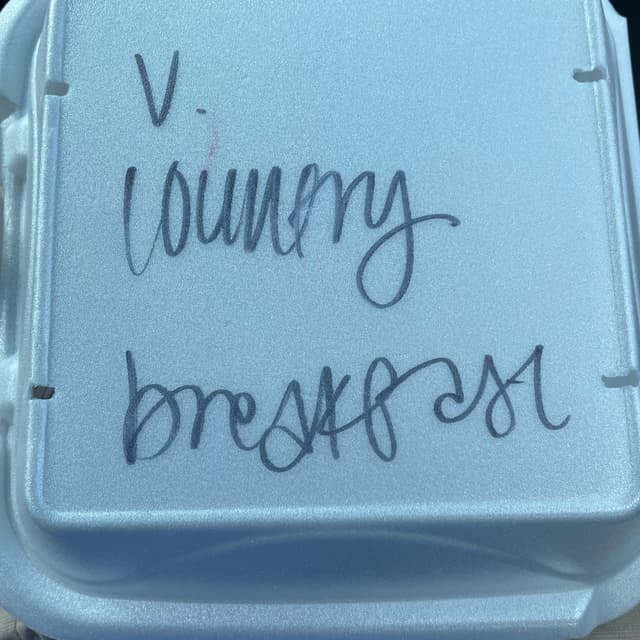 V.
Country
breakfast